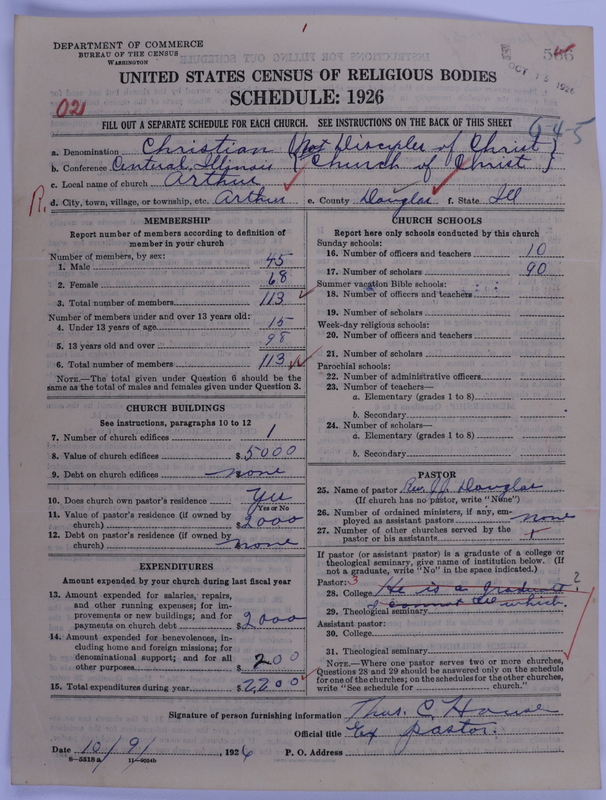 DEPARTMENT OF COMMERCE
BUREAU OF THE CENSUS
WASHINGTON
OCT 13 1926
UNITED STATES CENSUS OF RELIGIOUS BODIES
SCHEDULE: 1926
021
FILL OUT A SEPARATE SCHEDULE FOR EACH CHURCH. SEE INSTRUCTIONS ON THE BACK OF THIS SHEET
945
a. Denomination Christian {Not Disciples of Christ}
b. Conference Central, Illinois {Church of Christ}
c. Local name of church Arthur
R. d. City, town, village, or township, etc. Arthur e. County Douglas f. State Ill
MEMBERSHIP
Report number of members according to definition of
member in your church
Number of members, by sex:
1. Male 45
2. Female 68
3. Total number of members 113
Number of members under and over 13 years old:
4. Under 13 years of age 15
5. 13 years old and over 98
6. Total number of members 113
NOTE.—The total given under Question 6 should be
same as the total of males and females given under Question 3.
CHURCH BUILDINGS
See instructions, paragraphs 10 to 12
7. Number of church edifices 1
8. Value of church edifices $5000
9. Debt on church edifices none
10. Does church own pastor's residence Yes
Yes or No
11. Value of pastor's residence (if owned by
church) $2000
12. Debt on pastor's residence (if owned by
church) none
EXPENDITURES
Amount expended by your church during last fiscal year
13. Amount expended for salaries, repairs,
and other running expenses; for im-
provements or new buildings; and for
payments on church debt $2000
14. Amount expended for benevolences, in-
cluding home and foreign missions; for
denominational support; and for all
other purposes $200
15. Total expenditures during year $2200
CHURCH SCHOOLS
Report here only schools conducted by this church
Sunday schools:
16. Number of officers and teachers 10
17. Number of scholars 90
Summer vacation Bible schools:
18. Number of officers and teachers
19. Number of scholars
Week-day religious schools:
20. Number of officers and teachers
21. Number of scholars
Parochial schools:
22. Number of administrative officers
23. Number of teachers—
a. Elementary (grades 1 to 8)
b. Secondary
24. Number of scholars—
a. Elementary (grades 1 to 8)
b. Secondary
PASTOR
25. Name of pastor Rev. J.J. Douglas
(If church has no pastor, write "None")
26. Number of ordained ministers, if any, em-
ployed as assistant pastors none
27. Number of other churches served by the
pastor or his assistants
If pastor (or assistant pastor) is a graduate of a college or
theological seminary, give name of institution below. (If
not a graduate, write "No" in the space indicated.)
Pastor: 3
28. College He is a graduate ?
I cannot tell which.
29. Theological seminary
Assistant pastor:
30. College
31. Theological seminary
NOTE.—Where one pastor serves two or more churches,
Questions 28 and 29 should be answered only on the schedule
for one of the churches; on the schedules for the other churches,
write "See schedule for church."
Signature of person furnishing information Thos. C. House
Official title Ex pastor.
Date 10/9/, 1926 P. O. Address
8—5518a 11—9024b